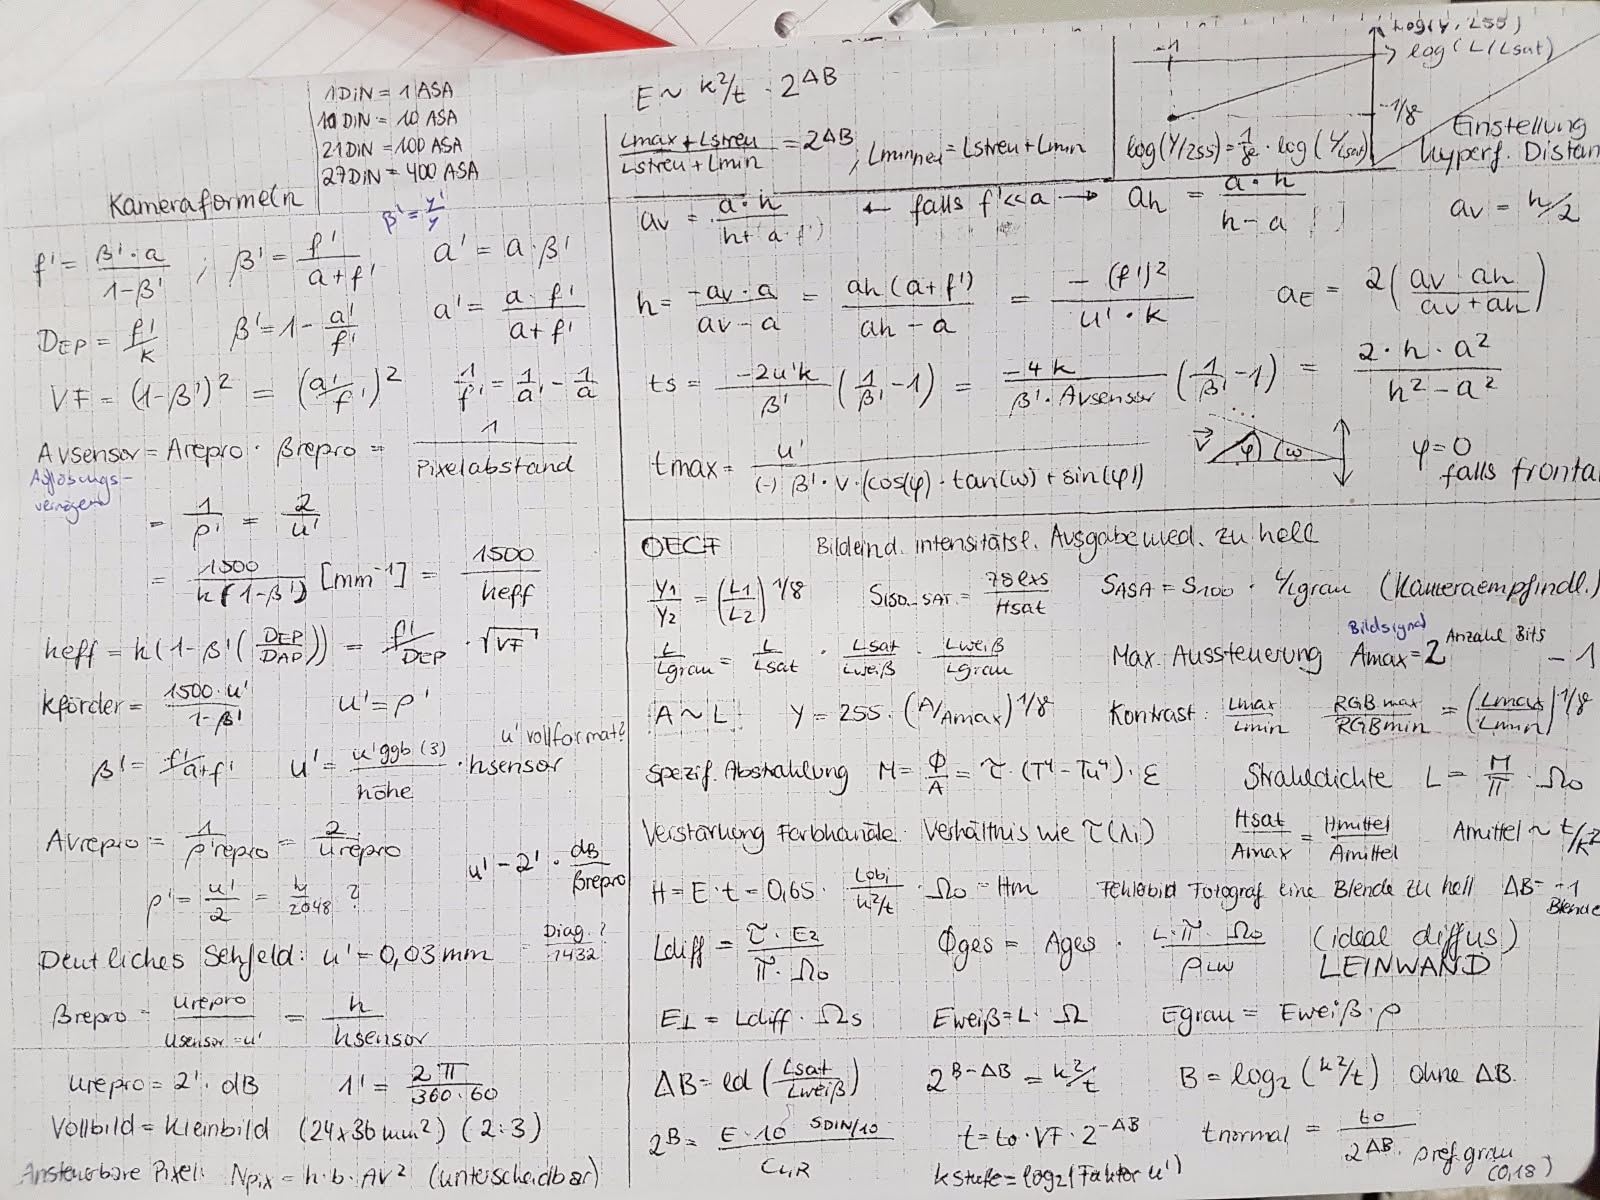 1 DIN = 1 ASA
10 DIN = 10 ASA
21 DIN = 100 ASA
27 DIN = 400 ASA
Kameraformeln
β' = y'/y
f' = β'·a / 1-β' ; β' = f' / a+f' a' = a·β'
D_EP = f'/k β' = 1 - a'/f' a' = a·f' / a+f'
VF = (1-β')² = (a'/f')² 1/f' = 1/a' - 1/a
Avsensor = Arepro · βrepro = 1 / Pixelabstand
Auflösungs-
vermögen
= 1/ρ' = 2/u'
= 1500 / k(1-β') [mm⁻¹] = 1500 / keff
keff = k(1-β'(DEP/DAP)) = f'/DEP · √VF
kförder = 1500·u' / 1-β' u' = ρ'
u' vollformat?
β' = f'/a+f' u' = u'ggb (3) / höhe · hsensor
AVrepro = 1/ρ'repro = 2/urepro
u' = 2' · dB/βrepro
ρ' = u'/2 = h/2048 ?
Deutliches Sehfeld: u' = 0,03mm = Diag.?/1432
βrepro = urepro / usensor = u' = h / hsensor
urepro = 2'·dB 1' = 2π / 360·60
Vollbild = Kleinbild (24x36mm²) (2:3)
Ansteuerbare Pixel: Npix = h·b·AV² (unterscheidbar)
E ~ k²/t · 2^ΔB
Lmax + Lstreu / Lstreu + Lmin = 2^ΔB, Lminneu = Lstreu + Lmin
log(Y/255)
log(L/Lsat)
-1
-1/γ
log(Y/255) = 1/γ · log(L/Lsat)
Einstellung
hyperf. Distan
av = a·h / h+(a-f') ← falls f' << a → ah = a·h / h-a av = h/2
h = -av·a / av-a = ah(a+f') / ah-a = -(f')² / u'·k aE = 2(av·ah / av+ah)
ts = -2u'k / β' (1/β' -1) = -4k / β'·Avsensor (1/β' -1) = 2·h·a² / h²-a²
tmax = u' / (-)β'·v·(cos(φ)·tan(ω)+sin(φ)) v φ ω φ=0
falls fronta
OECF Bildeind. intensitätsl. Ausgabemed. zu hell
Y1/Y2 = (L1/L2)^1/γ SISO-SAT = 78 lxs / Hsat SASA = S100 · L/Lgrau (Kameraempfindl.)
L/Lgrau = L/Lsat · Lsat/Lweiß · Lweiß/Lgrau Max. Aussteuerung Bildsignal Amax = 2^Anzahl Bits - 1
A ~ L Y = 255·(A/Amax)^1/γ Kontrast: Lmax/Lmin RGBmax/RGBmin = (Lmax/Lmin)^1/γ
Spezif. Abstrahlung M = Φ/A = τ·(T⁴-Tu⁴)·ε Strahldichte L = M/π · Ω₀
Verstärkung Farbkanäle Verhältnis wie τ(λi) Hsat/Amax = Hmittel/Amittel Amittel ~ t/k²
H = E·t = 0,65 · Lobj / k²/t · Ω₀ = Hm Fehlerbild Fotograf eine Blende zu hell ΔB = -1 Blende
Ldiff = τ·E2 / π·Ω₀ Φges = Ages · L·π·Ω₀ / ρLW (ideal diffus)
LEINWAND
E⊥ = Ldiff·Ωs Eweiß = L·Ω Egrau = Eweiß·ρ
ΔB = ld(Lsat/Lweiß) 2^B-ΔB = k²/t B = log₂(k²/t) ohne ΔB.
2^B = E·10^SDIN/10 / CL,R t = t0·VF·2^-ΔB tnormal = t0 / 2^ΔB ρref.grau (0,18)
kstufe = log₂(Faktor u')